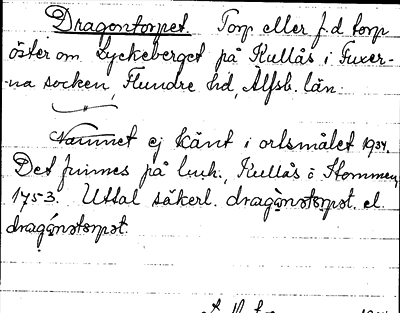 Dragontorpet. Torp eller f.d. torp
öster om Lyckeberget på Kullås i Fuxer-
na socken, Flundre hd, Älfsb. län.
Namnet ej känt i ortsmålet 1934.
Det finnes på
Kullås o Stommen,
1753. Uttal säkerl. dragǻnstɷrpət. el.
dragǻnstɷrpət.